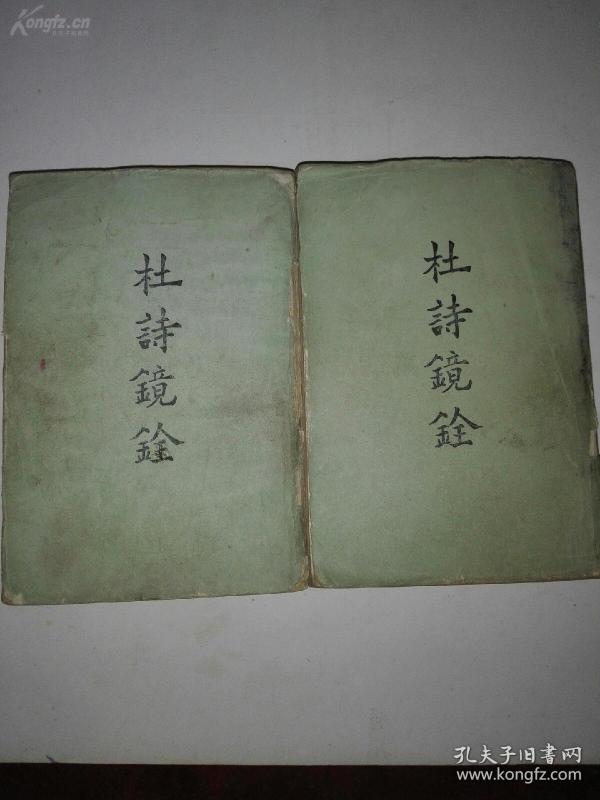 Kongfz.cn
杜詩鏡銓
杜詩鏡銓
孔夫子旧書网
www.kongfz.com